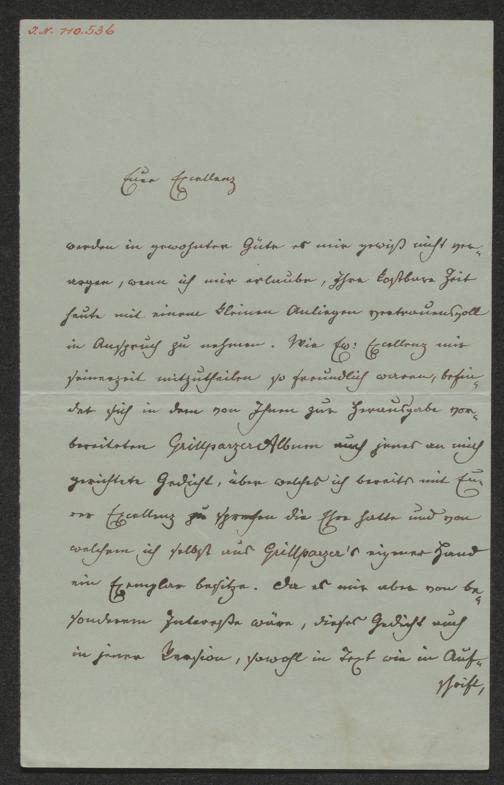 I.N. 110.536
Euer Excellenz
werden in gewohnter Güte es mir gewiß nicht ver-
argen, wenn ich mir erlaube, Ihre kostbare Zeit
heute mit einem kleinen Anliegen vertrauensvoll
in Anspruch zu nehmen. Wie Ew: Excellenz mir
seinerzeit mitzutheilen so freundlich waren, befin-
det sich in dem von Ihnen zur Herausgabe vor-
bereiteten Grillparzer Album auch jenes an mich
gerichtete Gedicht, über welches ich bereits mit Eu-
rer Excellenz zu sprechen die Ehre hatte und von
welchem ich selbst aus Grillparzer's eigener Hand
ein Exemplar besitze. Da es mir aber von be-
sonderem Interesse wäre, dieses Gedicht auch
in jener Version, sowohl in Text wie in Auf-
schrift,